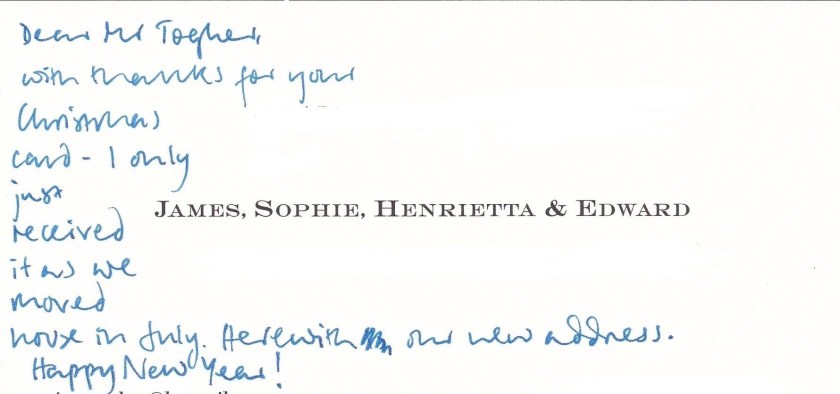 Dear Mr Togher,
with thanks for your
Christmas
card - I only
just
JAMES, SOPHIE, HENRIETTA & EDWARD
received
it as we
moved
house in July. Herewith our new address.
Happy New Year!